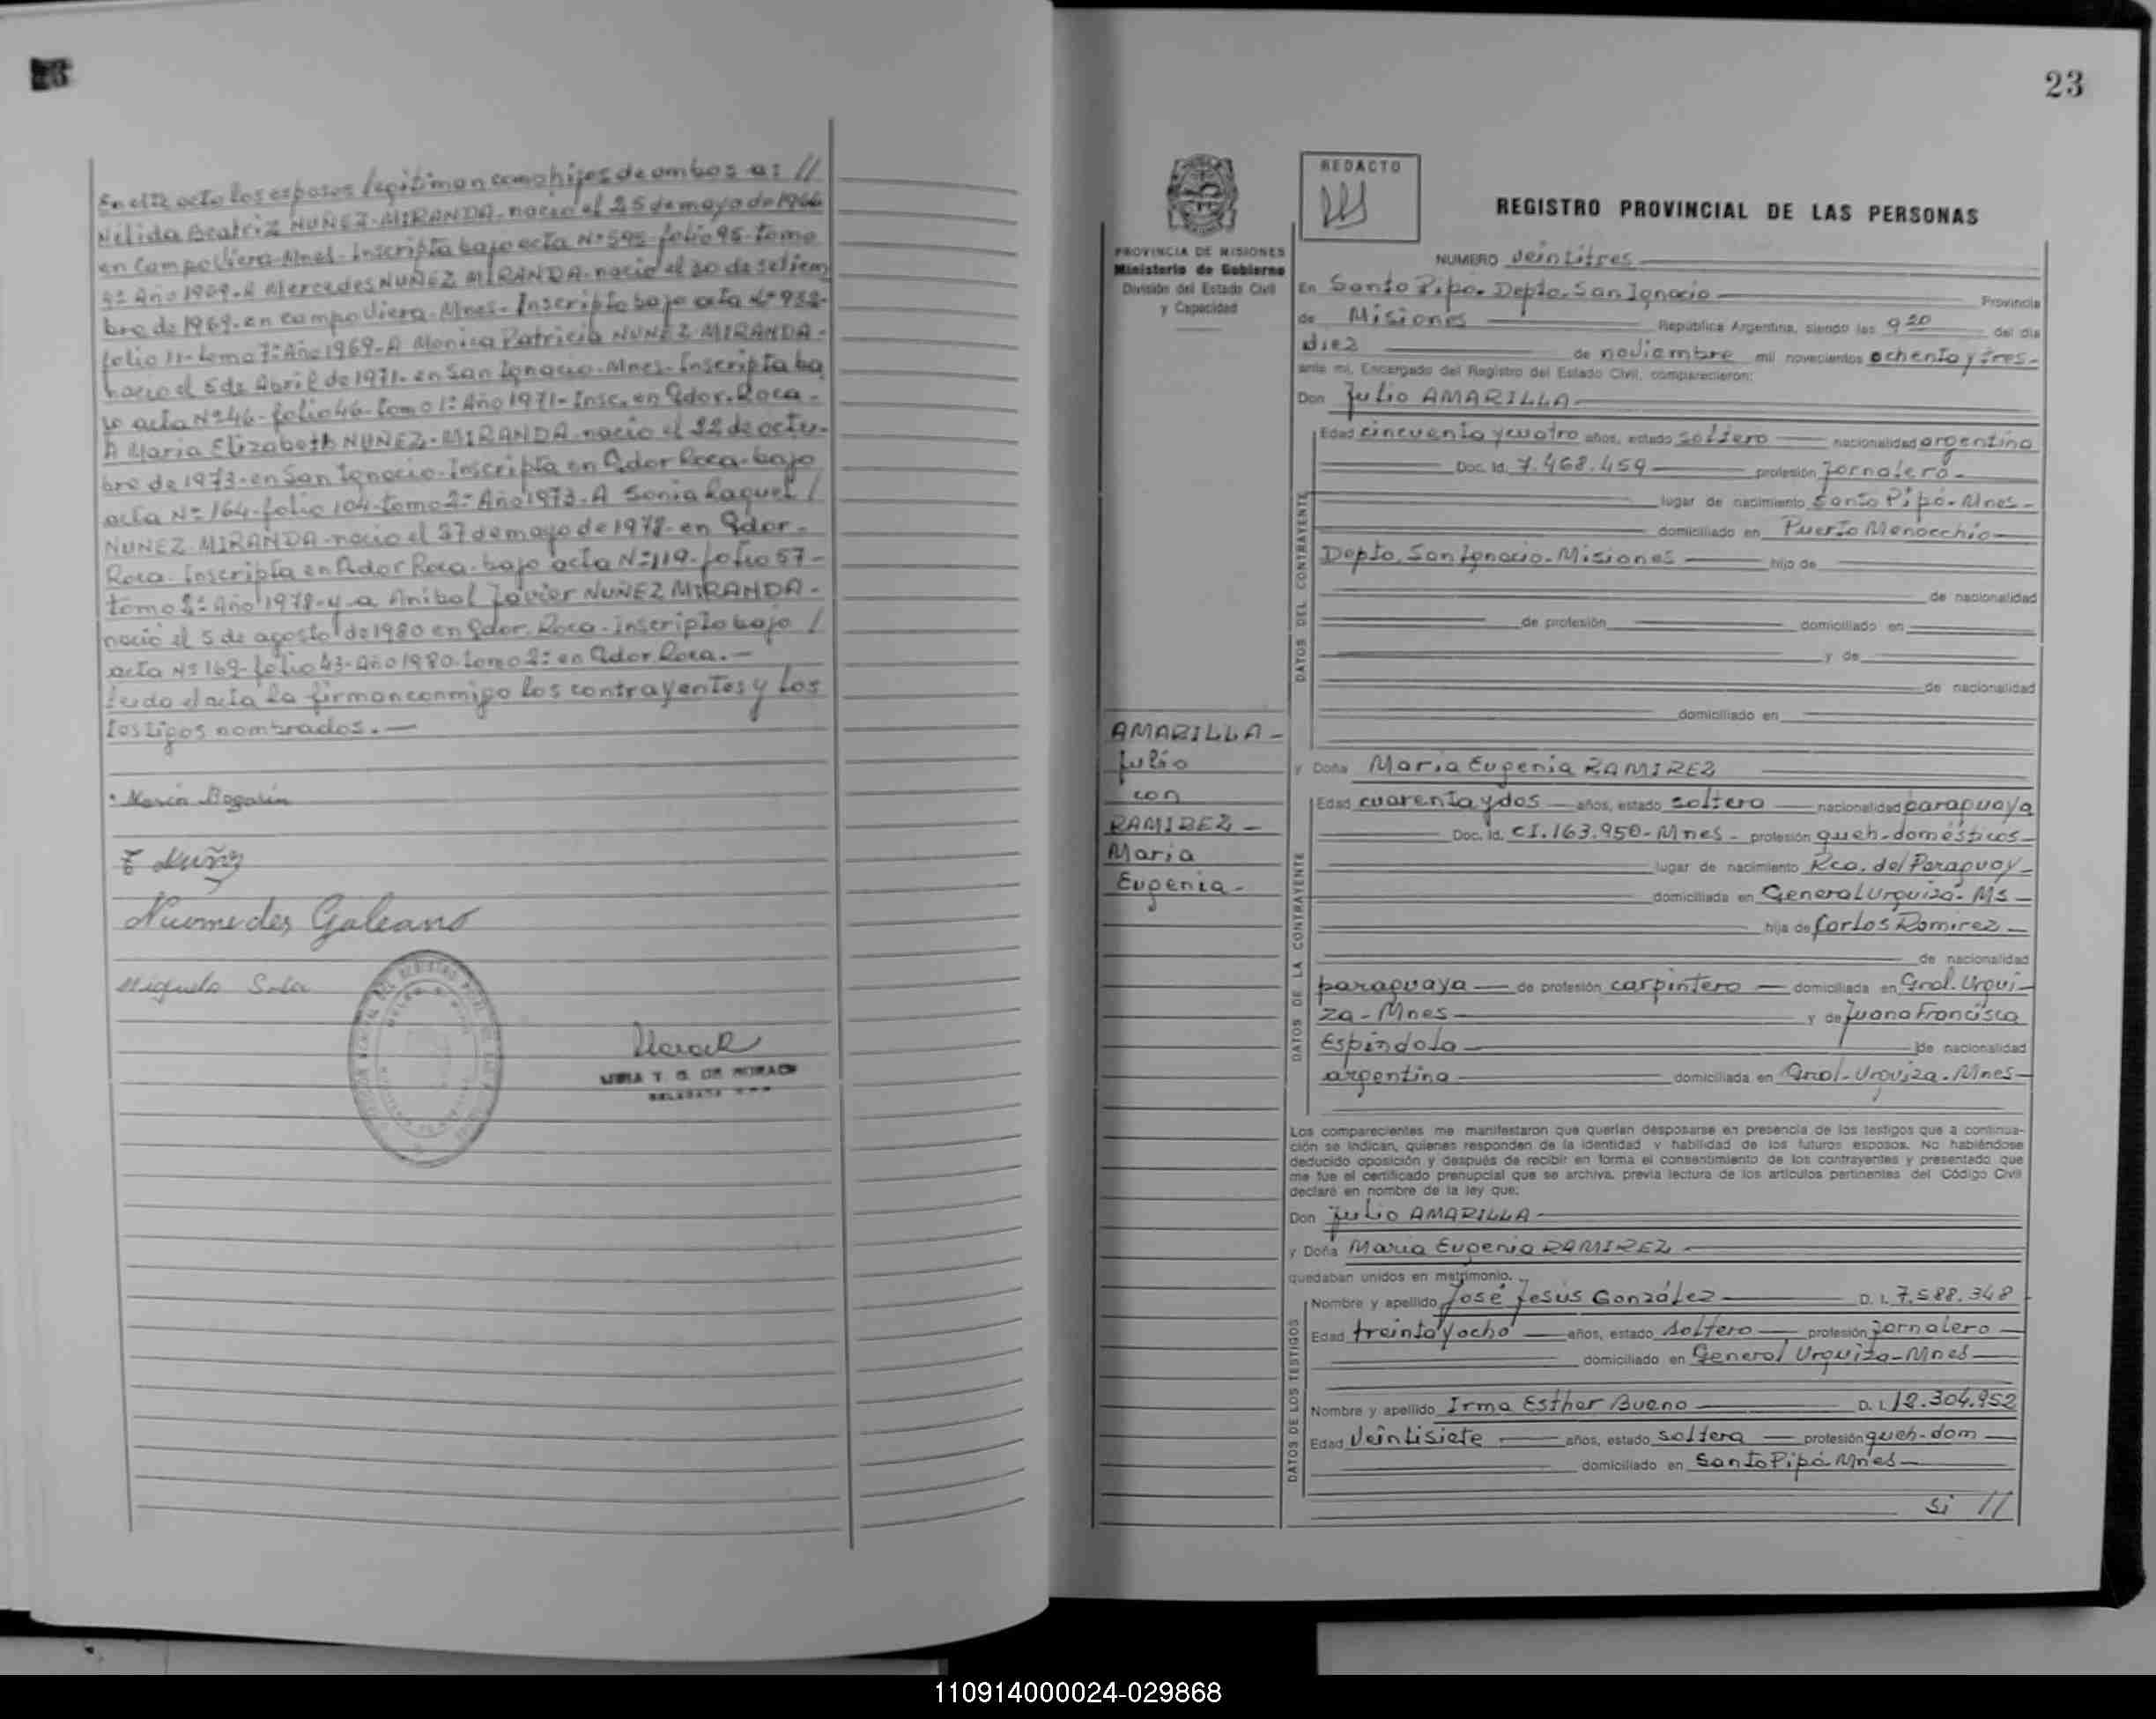 En este acto los esposos legitiman como hijos de ambos a: //
Nelida Beatriz NUÑEZ-MIRANDA-nacio el 25 de mayo de 1966
en Campo Viera-Mnes-Inscripta bajo acta Nº 595-folio 95-tomo
Año 1969-A Mercedes NUÑEZ MIRANDA-nacio el 20 de setiem
bre de 1969-en campo Viera-Mnes-Inscripta bajo acta Nº 932-
folio 11-tomo 7º Año 1969-A Monica Patricia NUÑEZ-MIRANDA-
nacio el 5 de Abril de 1971-en San Ignacio-Mnes-Inscripta ba
jo acta Nº 46-folio 46-tomo 1º Año 1971-Insc. en Gdor. Roca-
A Maria Elizabeth NUÑEZ-MIRANDA-nacio el 22 de octu-
bre de 1973-en San Ignacio-Inscripta en Gdor Roca-bajo
acta Nº 164-folio 104-tomo 2º Año 1973-A Sonia Raquel /
NUÑEZ-MIRANDA-nacio el 27 de mayo de 1978-en Gdor-
Roca-Inscripta en Gdor Roca-bajo acta Nº 119-folio 57-
tomo 2º Año 1978-y a Anibal Javier NUÑEZ MIRANDA-
nació el 5 de agosto de 1980 en Gdor. Roca-inscripto bajo /
acta Nº 169-folio 43-Año 1980-tomo 2º en Gdor Roca.-
Leida el acta la firman conmigo los contrayentes y los
testigos nombrados.-
Maria Bogarin
Nuñez
Niomedes Galeano
Miguela Sosa
DE MORAES
DELEGADA
23
REDACTO
REGISTRO PROVINCIAL DE LAS PERSONAS
PROVINCIA DE MISIONES
Ministerio de Gobierno
División del Estado Civil
y Capacidad
NUMERO veintitres
En Santo Pipo. Depto. San Ignacio Provincia
de Misiones República Argentina, siendo las 9 20 del día
diez de noviembre mil novecientos ochenta y tres-
ante mí, Encargado del Registro del Estado Civil, comparecieron:
Don Julio AMARILLA-
DATOS DEL CONTRAYENTE
Edad cincuenta y cuatro años, estado soltero nacionalidad argentina
Doc. Id. 7.468.459 profesión Jornalero-
lugar de nacimiento Santo Pipó-Mnes-
domiciliado en Puerto Menocchio
Depto. San Ignacio-Misiones hijo de
de nacionalidad
de profesión domiciliado en
y de
de nacionalidad
domiciliado en
AMARILLA-
Julio
con
RAMIREZ-
Maria
Eugenia-
y Doña Maria Eugenia RAMIREZ
DATOS DE LA CONTRAYENTE
Edad cuarenta y dos años, estado soltero nacionalidad paraguaya
Doc. Id. CI.163.950-Mnes- profesión queh-domésticos-
lugar de nacimiento Rca. del Paraguay-
domiciliada en General Urquiza-Ms-
hija de Carlos Ramirez-
de nacionalidad
paraguaya de profesión carpintero domiciliada en Gral. Urqui-
za-Mnes- y de Juana Francisca
Espindola de nacionalidad
argentina domiciliada en Gral-Urquiza-Mnes-
Los comparecientes me manifestaron que querían desposarse en presencia de los testigos que a continua-
ción se indican, quienes responden de la identidad y habilidad de los futuros esposos. No habiéndose
deducido oposición y después de recibir en forma el consentimiento de los contrayentes y presentado que
me fue el certificado prenupcial que se archiva, previa lectura de los artículos pertinentes del Código Civil
declaré en nombre de la ley que:
Don Julio AMARILLA-
y Doña Maria Eugenia RAMIREZ-
quedaban unidos en matrimonio.
DATOS DE LOS TESTIGOS
Nombre y apellido José Jesús González D. I. 7.588.348
Edad treinta y ocho años, estado soltero profesión Jornalero
domiciliado en General Urquiza-Mnes
Nombre y apellido Irma Esther Bueno D. I. 12.304.952
Edad veintisiete años, estado soltera profesión queh-dom
domiciliado en Santo Pipó Mnes-
Si //
110914000024-029868